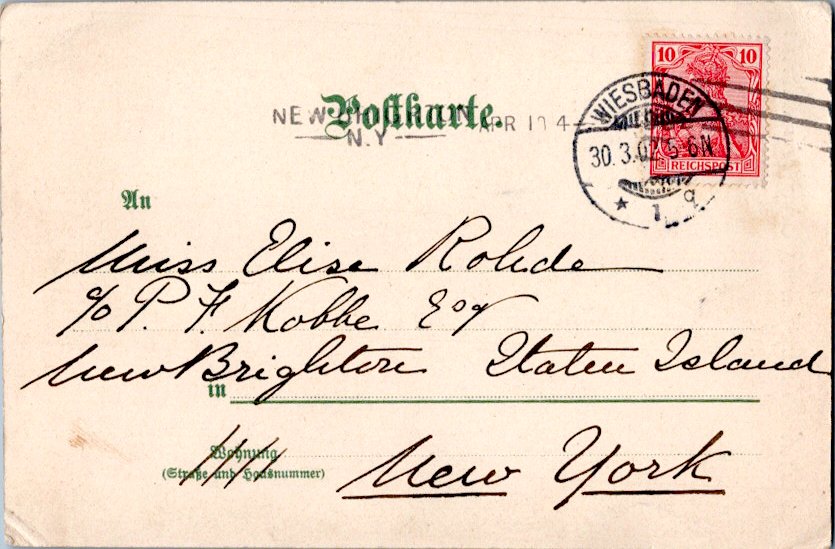 10 10
REICHSPOST
WIESBADEN
30.3.02 5-6N
* 1 q
Postkarte.
NEW BRIGHTON
N.Y.
APR
An
Miss Elise Rohde
c/o P. F. Kobbe Esq
New Brighton Staten Island
in
Wohnung
(Straße und Hausnummer)
New York